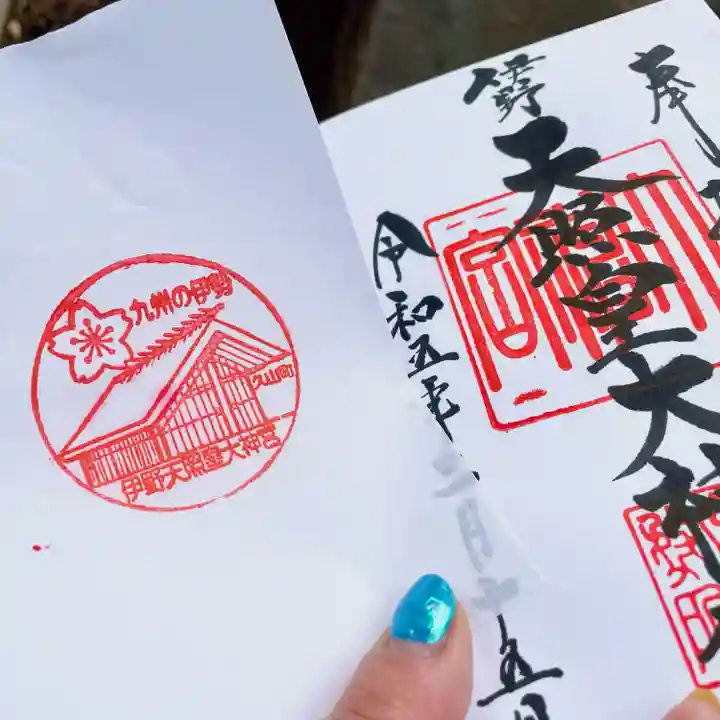 九州の伊勢
久山町
伊野天照皇大神宮
奉拝
伊野
天照皇大神宮
令和五年二月十五日